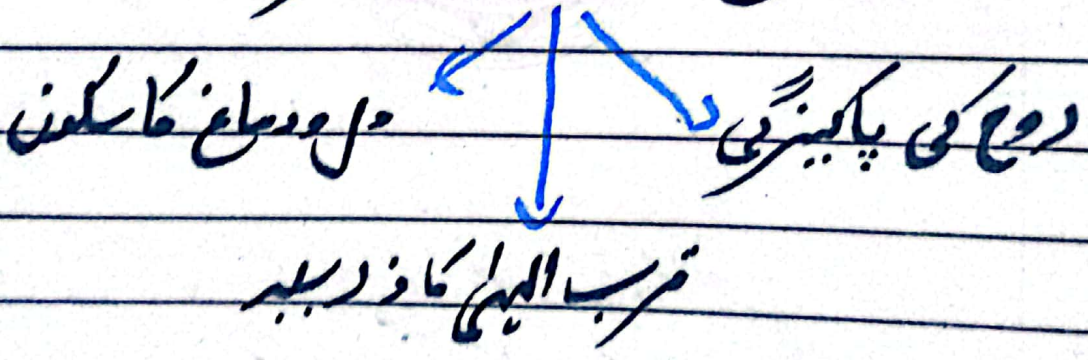 روح کی پاکیزگی
دل ودماغ کا سکون
قرب الہی کا ذریعہ